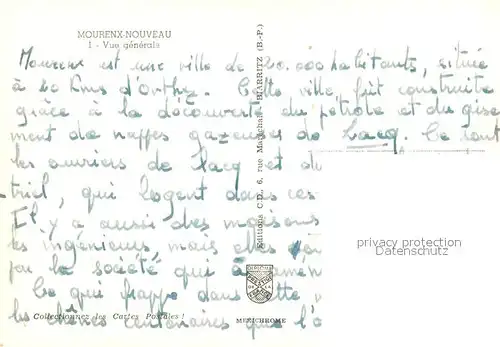 MOURENX-NOUVEAU
1 - Vue générale
Mourenx est une ville de 20.000 habitants, située
à 20 kms d'Orthez. Cette ville fut construite
grâce à la découverte du pétrole et du gise
ment de nappes gazeuses de Lacq. Ce sont
les ouvriers de Lacq et du
triel, qui logent dans ces
Il y a aussi des maisons
les ingénieurs mais elles
par la société qui
Ce qui frappe dans cette
les chênes centenaires que l'o
Editions C.D., 6, rue Maréchal BIARRITZ (B.-P.)
privacy protection
Datenschutz
Collectionnez les Cartes Postales !
MEXICHROME